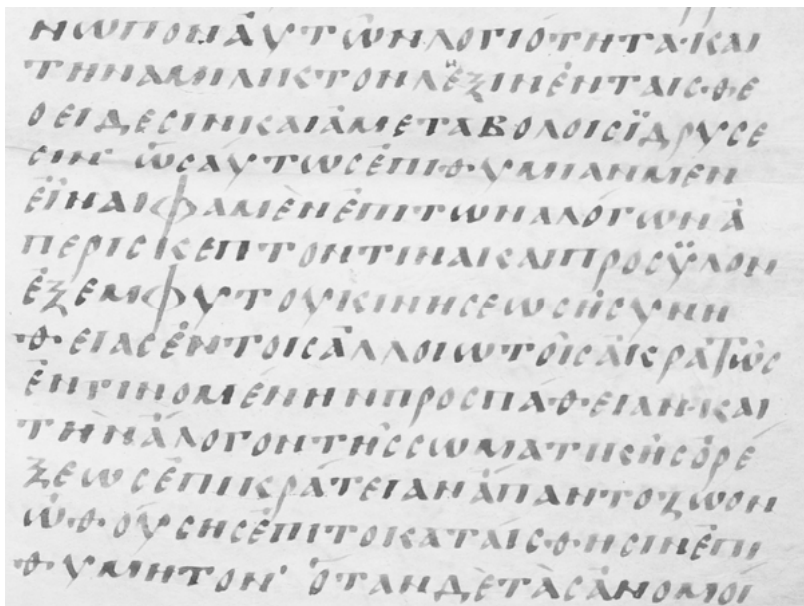 ΝΩΠΟΝἈΥΤΩ͂ΝΛΟΓΙΌΤΗΤΑ·ΚΑΙ
ΤΗΝΑΜΙΛΙΚΤΟΝΛἝΞΙΝἘΝΤΑΙΣΘΕ
ΟΕΙΔΕΣΙΝΚΑΙἈΜΕΤΑΒΟΛΟΙΣΪΔΡΥΣΕ
ΣΙΝ· ὩΣΑΎΤΩΣἘΠΙΘΥΜΙΑΝΜΈΝ
ΕἾΝΑΙΦΑΜῈΝἘΠΙΤΩΝΑΛΌΓΩΝἈ
ΠΕΡΙΣΚΕΠΤΟΝΤΙΝΑΚΑΙΠΡΟΣΫΛΟΝ
ἘΞΕΜΦΥΤΟΥΚΙΝΗΣΕΩΣἨΣΥΝΗ
ΘΕΙΑΣἘΝΤΟΙΣἈΛΛΟΙΩΤΟΙ͂ΣἈΚΡΑΤΩ͂Σ
ἘΝΓΙΝΟΜΈΝΗΝΠΡΟΣΠΆΘΕΙΑΝ·ΚΑΙ
ΤΗΝἌΛΟΓΟΝΤΗ͂ΣΣΩΜΑΤΙΚΗ͂ΣὈΡΈ
ΞΕΩΣἘΠΙΚΡΆΤΕΙΑΝἍΠΑΝΤΟΖΩΟΝ
ὨΘΟΎΣΗΣἘΠΙΤΟΚΑΤΑΙΣΘΗΣΙΝἘΠΙ
ΘΥΜΗΤΟΝ· ὍΤΑΝΔῈΤᾺΣἈΝΟΜΟΊ